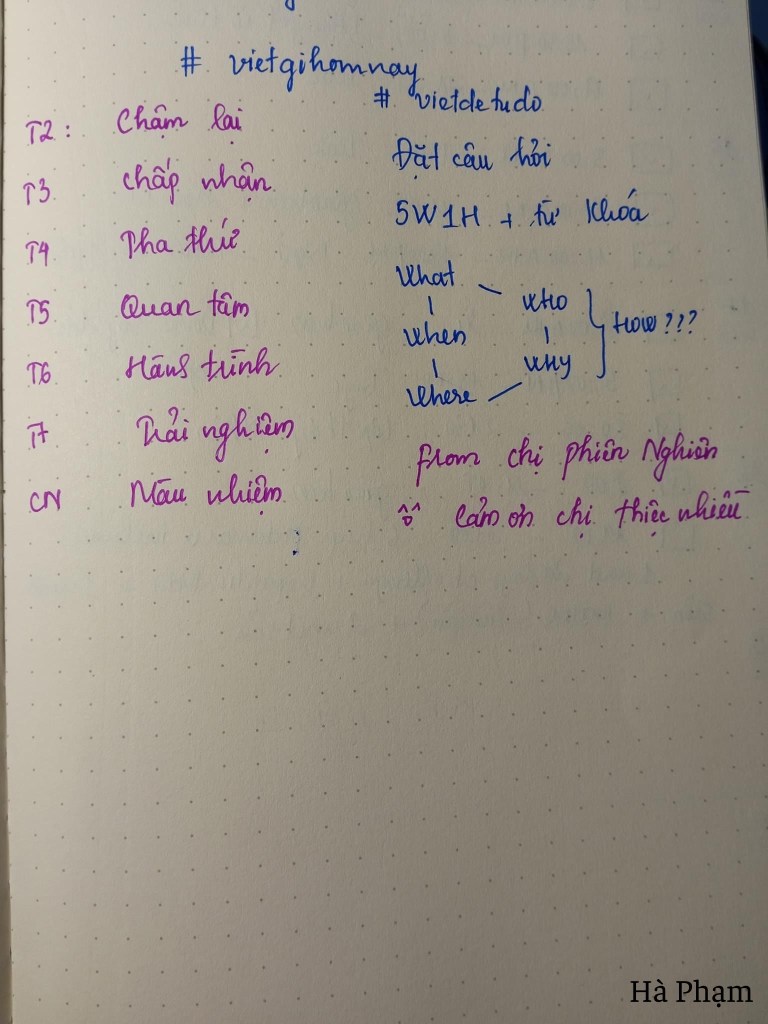 # vietgihomnay
# vietdetudo
T2: Chậm lại
T3 chấp nhận
T4 Tha thứ
T5 Quan tâm
T6 Hành trình
T7 Trải nghiệm
CN Mầu nhiệm
Đặt câu hỏi
5W1H + từ khóa
What
Who
When
Why
Where
How???
from chị phiên Nghiên
Cảm ơn chị thiệc nhiều
Hà Phạm